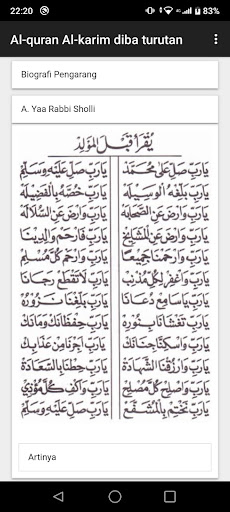 22:20
Al-quran Al-karim diba turutan
Biografi Pengarang
A. Yaa Rabbi Sholli
يُقْرَأُ قَبْلَ الْمَوْلِدْ
يَارَبِّ صَلِّ عَلَى مُحَمَّدْ يَارَبِّ صَلِّ عَلَيْهِ وَسَلِّمْ
يَارَبِّ بَلِّغْهُ الْوَسِيْلَهْ يَارَبِّ خُصَّهُ بِالْفَضِيْلَهْ
يَارَبِّ وَارْضَ عَنِ الصَّحَابَهْ يَارَبِّ وَارْضَ عَنِ السُّلَالَهْ
يَارَبِّ وَارْضَ عَنِ الْمَشَايِخْ يَارَبِّ فَارْحَمْ وَالِدِيْنَا
يَارَبِّ وَارْحَمْنَا جَمِيْعًا يَارَبِّ وَارْحَمْ كُلَّ مُسْلِمْ
يَارَبِّ وَاغْفِرْ لِكُلِّ مُذْنِبْ يَارَبِّ لَا تَقْطَعْ رَجَانَا
يَارَبِّ يَا سَامِعْ دُعَانَا يَارَبِّ بَلِّغْنَا نَزُوْرُهْ
يَارَبِّ تَغْشَانَا بِنُوْرِهْ يَارَبِّ حِفْظَانَكْ وَامَانَكْ
يَارَبِّ وَاسْكِنَّا جِنَانَكْ يَارَبِّ اَجِرْنَا مِنْ عَذَابِكْ
يَارَبِّ وَارْزُقْنَا الشَّهَادَهْ يَارَبِّ حِطْنَا بِالسَّعَادَهْ
يَارَبِّ وَاصْلِحْ كُلَّ مُصْلِحْ يَارَبِّ وَاكْفِ كُلَّ مُؤْذِيْ
يَارَبِّ نَخْتِمْ بِالْمُشَفَّعْ يَارَبِّ صَلِّ عَلَيْهِ وَسَلِّمْ
Artinya